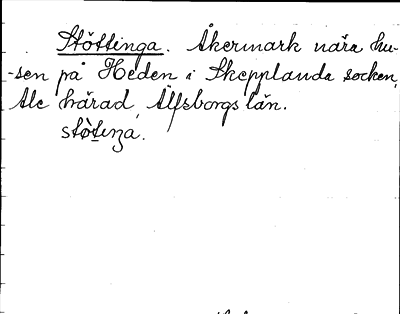 Stöttinga. Åkermark nära hu-
-sen på Heden i Skepplanda socken,
Ale härad, Älfsborgs län.